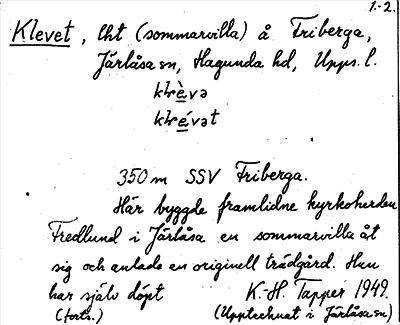 1.-2.
Klevet, lht (sommarvilla) å Friberga,
Järlåsa sn, Hagunda hd, Upps. l.
klrèvə
klrévət
350 m SSV Friberga.
Här byggde framlidne kyrkoherden
Fredlund i Järlåsa en sommarvilla åt
sig och anlade en originell trädgård. Han
har själv döpt K.-H. Tapper 1949.
(forts.) (Upptecknat i Järlåsa sn)